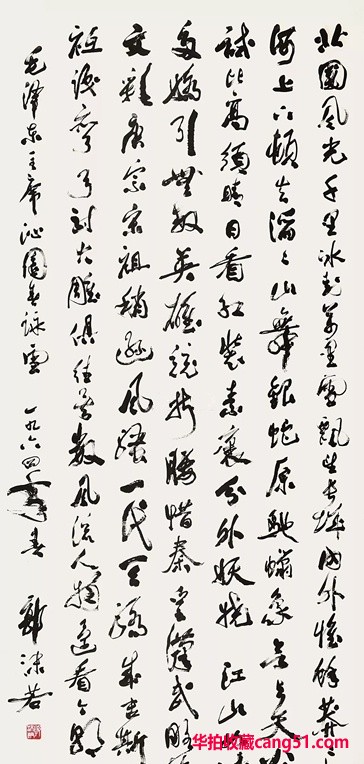 北國風光千里冰封萬里雪飄望長城內外惟餘莽々
河上下頓失滔々山舞銀蛇原馳蠟象欲與天
試比高須晴日看紅裝素裹分外妖嬈 江山
多嬌引無數英雄競折腰惜秦皇漢武略
文彩唐宗宋祖稍遜風騷一代天驕成吉斯
祇識彎弓射大雕俱往矣數風流人物還看今朝
毛澤東主席沁園春詠雪 一九六四年春 郭沫若
华拍收藏cang51.com